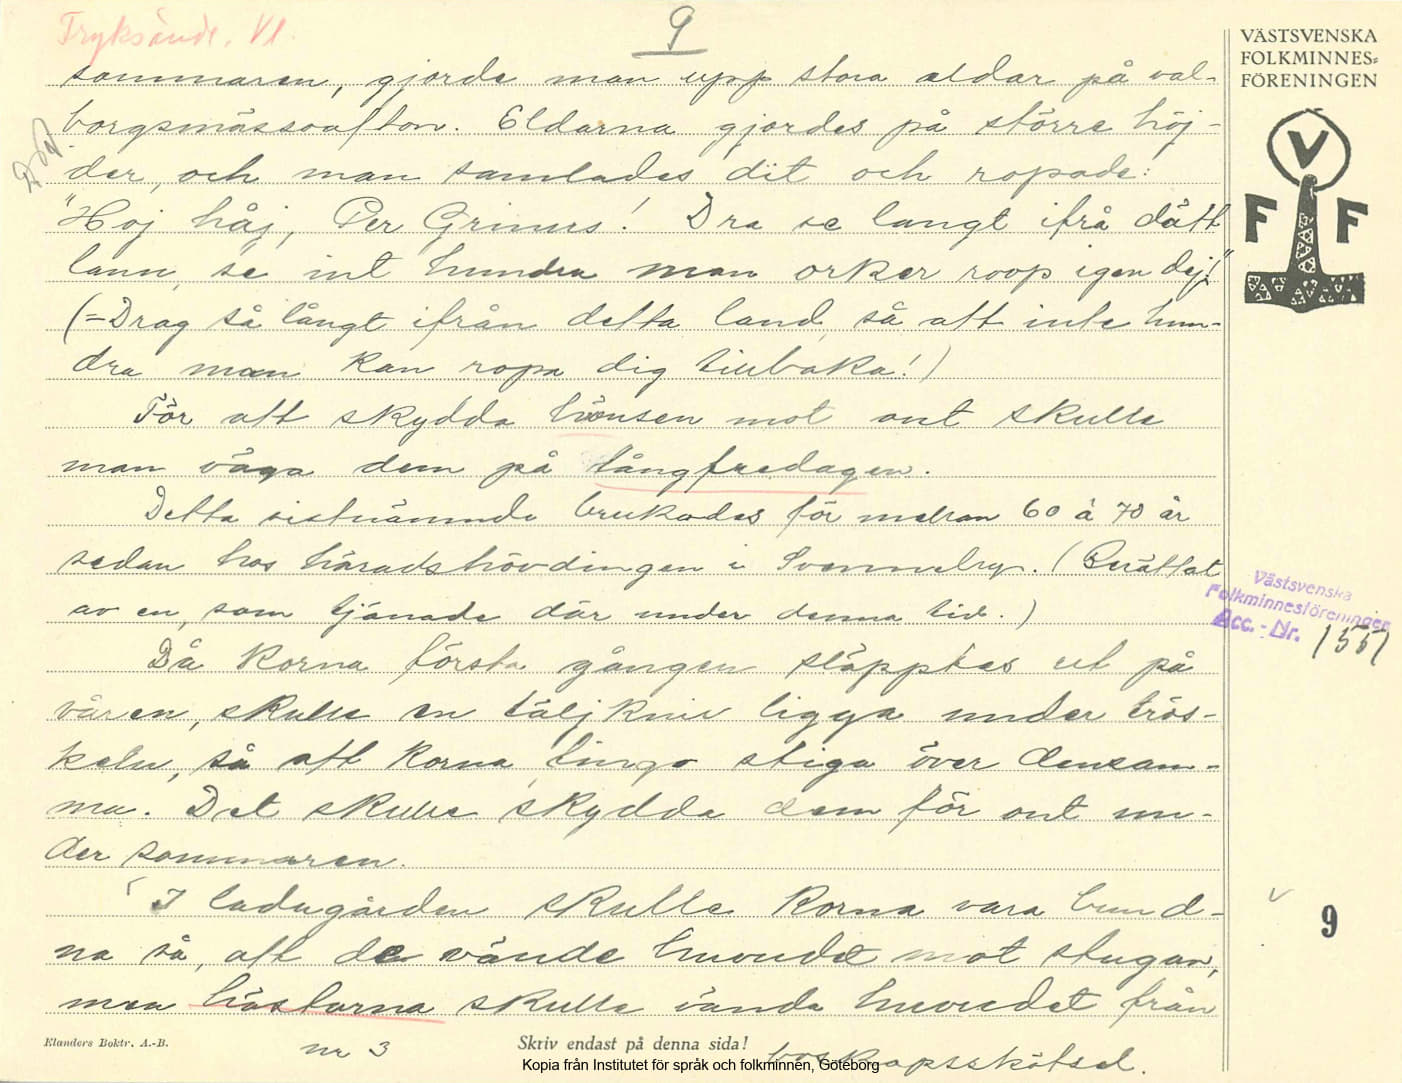 Tryksände. VI.
9
VÄSTSVENSKA
FOLKMINNES-
FÖRENINGEN
V
F F
sommaren, gjorde man upp stora eldar på val-
borgsmässoafton. Eldarna gjordes på större höj-
der, och man samlades dit och ropade:
"Hoj håj, Per Grimus! Dra se langt ifrå dått
lann, se int hundra man orker roop igen dej!"
(=Drag så långt ifrån detta land, så att inte hun-
dra man kan ropa dig tillbaka!)
För att skydda hönsen mot ont skulle
man väga dem på långfredagen.
Detta sistnämnda brukades för mellan 60 à 70 år
sedan hos häradshövdingen i Svenneby. (Berättat
av en, som tjänade där under denna tid.)
Då korna första gången släpptes ut på
våren, skulle en täljkniv ligga under trös-
keln, så att korna fingo stiga över densam-
ma. Det skulle skydda dem för ont un-
der sommaren.
I ladugården skulle korna vara bund-
na så, att de vände huvudet mot stugan,
men hästarna skulle vända huvudet från
Västsvenska
Folkminnesföreningen
Acc.-Nr. 1557
9
Elanders Boktr. A.-B.
nr 3
Skriv endast på denna sida!
boskapsskötsel.
Kopia från Institutet för språk och folkminnen, Göteborg